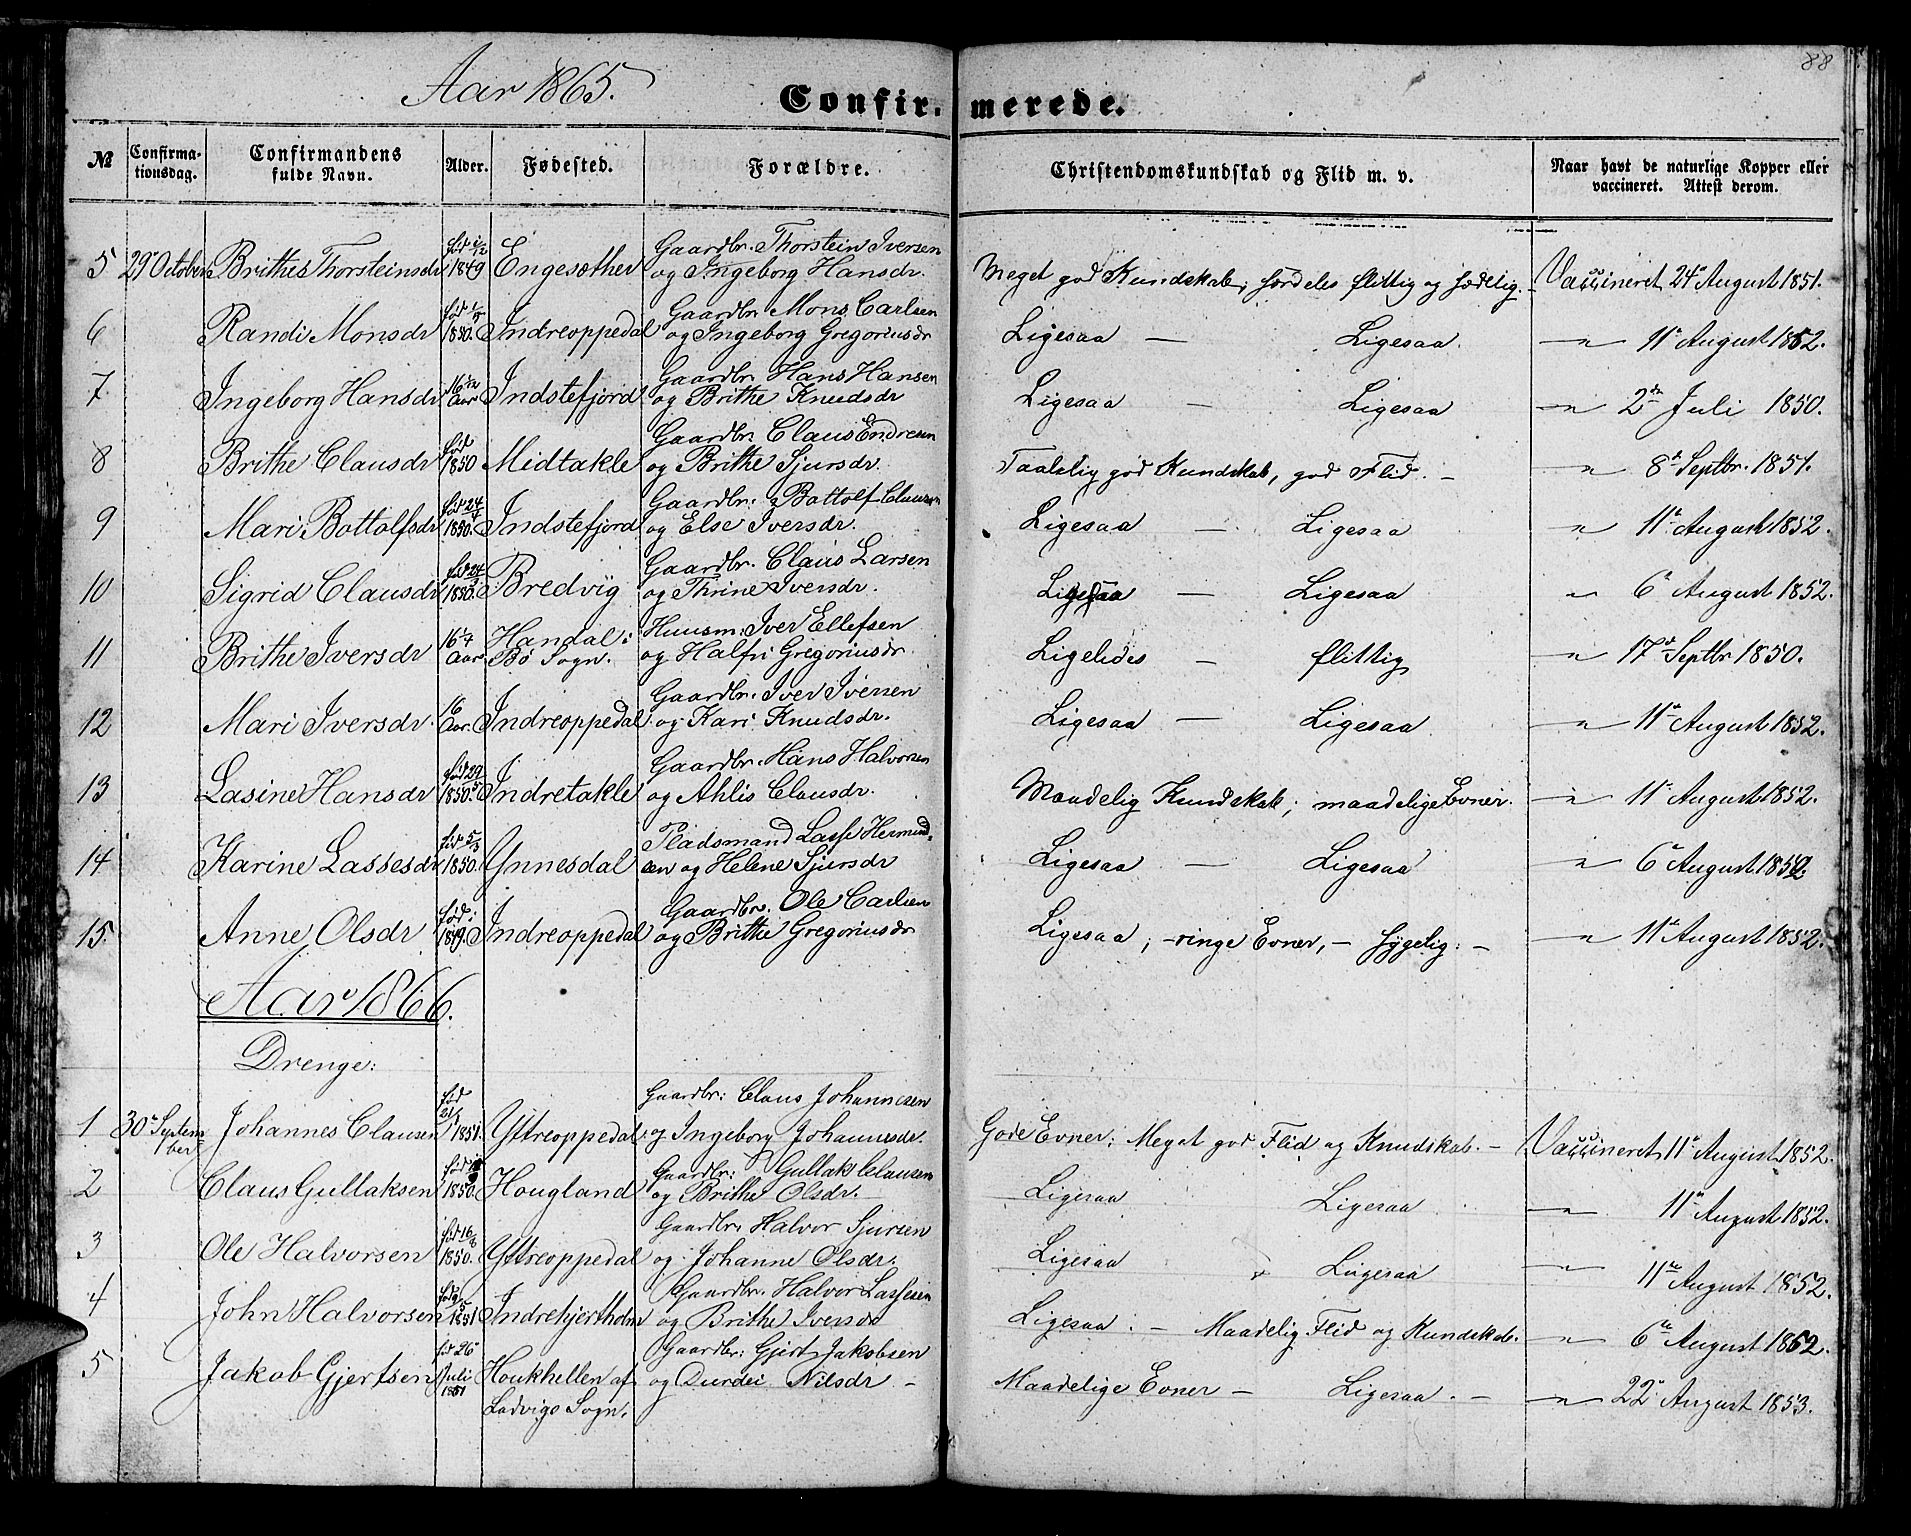 88
Aar 1865.
Confirmerede.
№ Confirmationsdag. Confirmandens fulde Navn. Alder. Fødested. Forældre. Christendomskundskab og Flid m. v. Naar havt de naturlige Kopper eller vaccineret. Attest derom.
Gaardbr. Thorstein Iversen
5 29de October Brithe Thorsteinsdr 1849 Engesæther og Ingeborg Hansdr. Meget god Kundskab; særdeles flittig og sædelig. Vaccineret 24de August 1851.
Gaardbr. Mons Carlsen
6 Randi Monsdr 1850. Indreoppedal og Ingeborg Gregoriusdr Ligesaa — Ligesaa. — " — 11te August 1852.
Gaardbr. Hans Hansen
7. Ingeborg Hansdr Aar Indstefjord og Brithe Knudsdr Ligesaa — Ligesaa — " — 2den Juli 1850.
Gaardbr. Claus Endresen
8 Brithe Clausdr født 1850 Midtakle og Brithe Sjursdr. Taalelig god Kundskab, god Flid. — " — 8de Septbr. 1851.
Gaardbr: Bottolf Clausen
9 Mari Bottolfsdr født 24/4 1850. Indstefjord og Else Iversdr. Ligesaa — Ligesaa " — 11te August 1852.
Gaardbr. Claus Larsen
10 Sigrid Clausdr 1850. Bredvig og Thrine Iversdr. Ligesaa — Ligesaa " 6te August 1852.
Huusm: Iver Ellefsen
11 Brithe Iversdr 16 1/4 Aar Handal i Bø Sogn. og Halfri Gregoriusdr. Ligeledes — flittig " — 17de Septbr 1850.
Gaardbr. Iver Iversen
12 Mari Iversdr. 16 Aar. Indreoppedal og Kari Knudsdr. Ligesaa — Ligesaa — " — 11te August 1852.
Gaardbr. Hans Halvorsen
13 Lasine Hansdr 1850. Indretakle og Ahlis Clausdr. Maadelig Kundskab; maadelige Evner. — " — 11te August 1852.
Pladsmand Lasse Hermund=
14 Karine Lassesdr født 5/3 1850. Ynnesdal sen og Helene Sjursdr Ligesaa — Ligesaa — " — 6te August 1852.
Gaardbr. Ole Carlsen
15. Anne Olsdr født i 1849. Indreoppedal og Brithe Gregoriusdr Ligesaa; — ringe Evner, — sygelig: — — " — 11te August 1852.
Aar 1866.
Drenge:
Gaardbr: Claus Johannesen
1 30te September Johannes Clausen født 21/1 1851. Yttreoppedal og Ingeborg Johannesdr. Gode Evner; Meget god Flid og Kundskab. — Vaccineret 11te August 1852.
Gaardbr: Gullak Clausen
2 Claus Gullaksen 1850. Hougland og Brithe Olsdr. Ligesaa Ligesaa — " — 11te August 1852.
Gaardbr. Halvor Sjursen
3 Ole Halvorsen født 16/8 1850. Yttreoppedal og Johanne Olsdr. Ligesaa Ligesaa — " — 11te August 1852.
Gaardbr. Halvor Lassesen
4 John Halvorsen 1851 Indrehjertholm og Brithe Iversdr Ligesaa. — Maadelig Flid og Kundskab. — " — 6te August 1852.
Gaardbr: Gjert Jakobsen
5 Jakob Gjertsen født 26de Juli 1851 Houkhellen af Ladvigs Sogn. og Durdei Nilsdr — Maadelige Evner — Ligesaa. — — " — 22de August 1853.